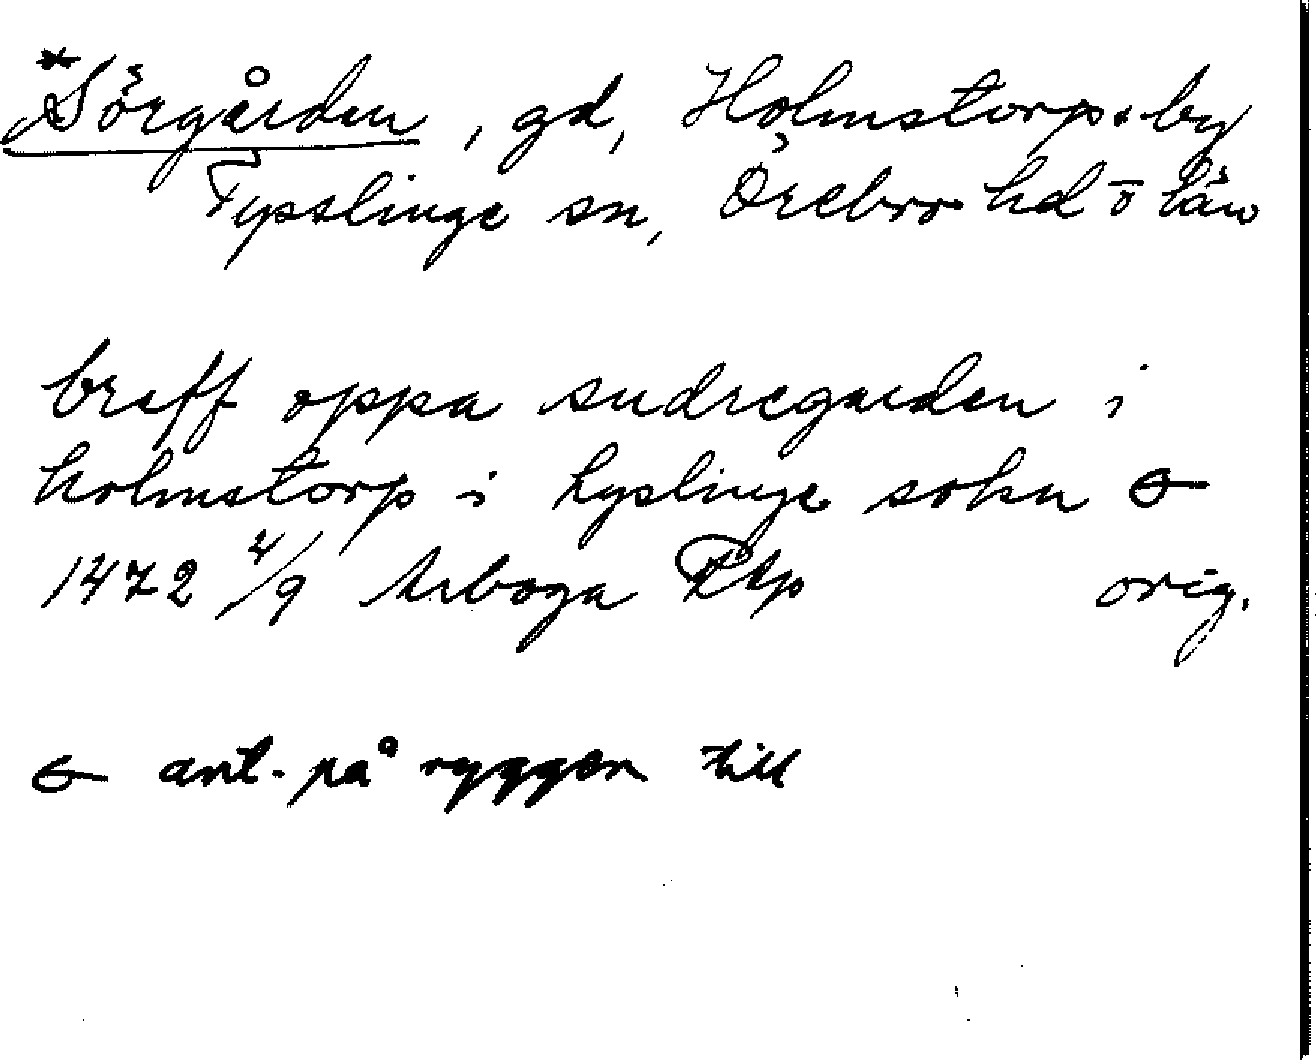 *Sörgården, gd, Holmstorps by
Tysslinge sn, Örebro hd o län
breff oppa sudregarden i
holmstorp i tyslinge sokn
1472 4/9 Arboga RAp orig.
ant. på ryggen till